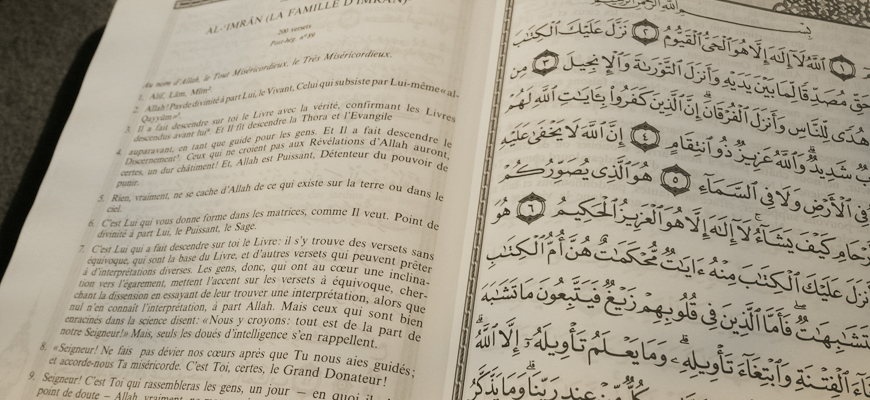 AL-'IMRĀN (LA FAMILLE D'IMRAN)
200 versets
Post-hég. n°89
Au nom d'Allah, le Tout Miséricordieux, le Très Miséricordieux.
1. Alif, Lām, Mīm
2. Allah! Pas de divinité à part Lui, le Vivant, Celui qui subsiste par Lui-même «al-
Qayyūm»
3. Il a fait descendre sur toi le Livre avec la vérité, confirmant les Livres
descendus avant lui. Et Il fit descendre la Thora et l'Evangile
4. auparavant, en tant que guide pour les gens. Et Il a fait descendre le
Discernement. Ceux qui ne croient pas aux Révélations d'Allah auront,
certes, un dur châtiment! Et, Allah est Puissant, Détenteur du pouvoir de
punir.
5. Rien, vraiment, ne se cache d'Allah de ce qui existe sur la terre ou dans le
ciel.
6. C'est Lui qui vous donne forme dans les matrices, comme Il veut. Point de
divinité à part Lui, le Puissant, le Sage.
7. C'est Lui qui a fait descendre sur toi le Livre: il s'y trouve des versets sans
équivoque, qui sont la base du Livre, et d'autres versets qui peuvent prêter
à d'interprétations diverses. Les gens, donc, qui ont au cœur une inclina-
tion vers l'égarement, mettent l'accent sur les versets à équivoque, cher-
chant la dissension en essayant de leur trouver une interprétation, alors que
nul n'en connaît l'interprétation, à part Allah. Mais ceux qui sont bien
enracinés dans la science disent: «Nous y croyons: tout est de la part de
notre Seigneur!» Mais, seuls les doués d'intelligence s'en rappellent.
8. «Seigneur! Ne fais pas dévier nos cœurs après que Tu nous aies guidés;
et accorde-nous Ta miséricorde. C'est Toi, certes, le Grand Donateur!
9. Seigneur! C'est Toi qui rassembleras les gens, un jour – en quoi il
point de doute – Allah, vraiment, ne
بِسْمِ ٱللَّهِ ٱلرَّحْمَٰنِ ٱلرَّحِيمِ
١ ٱللَّهُ لَآ إِلَٰهَ إِلَّا هُوَ ٱلْحَىُّ ٱلْقَيُّومُ ٢ نَزَّلَ عَلَيْكَ ٱلْكِتَٰبَ
مُصَدِّقًا لِّمَا بَيْنَ يَدَيْهِ وَأَنزَلَ ٱلتَّوْرَىٰةَ وَٱلْإِنجِيلَ ٣ مِن
هُدًى لِّلنَّاسِ وَأَنزَلَ ٱلْفُرْقَانَ إِنَّ ٱلَّذِينَ كَفَرُوا۟ بِـَٔايَٰتِ ٱللَّهِ لَهُمْ
شَدِيدٌ وَٱللَّهُ عَزِيزٌ ذُو ٱنتِقَامٍ ٤ إِنَّ ٱللَّهَ لَا يَخْفَىٰ عَلَيْهِ
فِى ٱلْأَرْضِ وَلَا فِى ٱلسَّمَآءِ ٥ هُوَ ٱلَّذِى يُصَوِّرُكُمْ
كَيْفَ يَشَآءُ لَآ إِلَٰهَ إِلَّا هُوَ ٱلْعَزِيزُ ٱلْحَكِيمُ ٦ هُوَ
عَلَيْكَ ٱلْكِتَٰبَ مِنْهُ ءَايَٰتٌ مُّحْكَمَٰتٌ هُنَّ أُمُّ ٱلْكِتَٰبِ
فَأَمَّا ٱلَّذِينَ فِى قُلُوبِهِمْ زَيْغٌ فَيَتَّبِعُونَ مَا تَشَٰبَهَ
ٱلْفِتْنَةِ وَٱبْتِغَآءَ تَأْوِيلِهِۦ وَمَا يَعْلَمُ تَأْوِيلَهُۥٓ إِلَّا ٱللَّهُ
كُلٌّ مِّنْ عِندِ رَبِّنَا وَمَا يَذَّكَّرُ